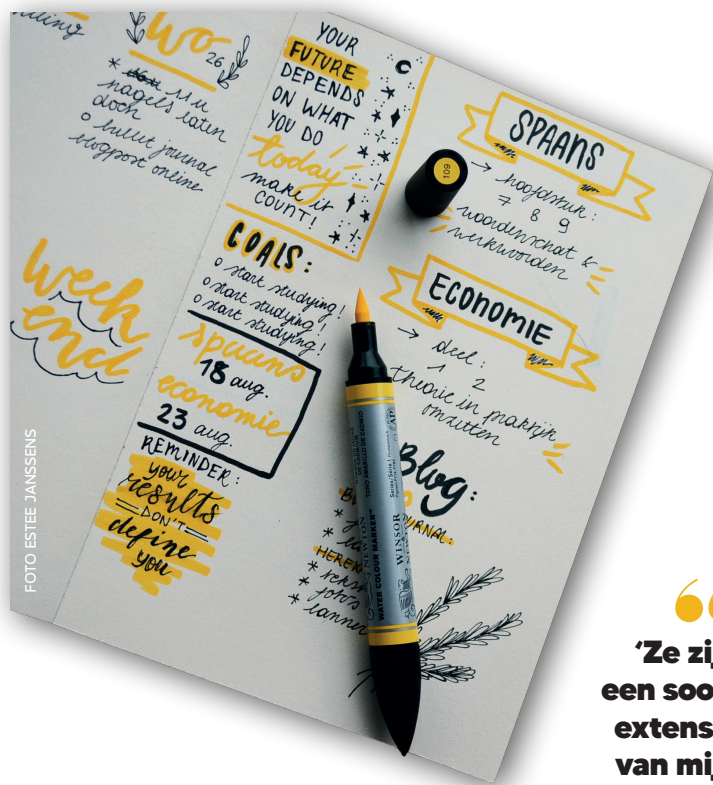 Wo 26
* 11u
nagels laten
doen
o bullet journal
blogpost online
week
end
YOUR
FUTURE
DEPENDS
ON WHAT
YOU DO
today
make it
COUNT!
GOALS:
o start studying!
o start studying!
o start studying!
spaans
18 aug.
economie
23 aug.
REMINDER:
your
results
DON'T
define
you
109
SPAANS
→ hoofdstuk:
7 8 9
woordenschat &
werkwoorden
ECONOMIE
→ deel:
1 2
theorie in praktijk
omzetten
Blog:
JOURNAL:
* tekst
* foto's
WATER COLOUR MARKER™
WINSOR
NEWTON
FOTO ESTEE JANSSENS
'Ze zij
een soo
extens
van mij